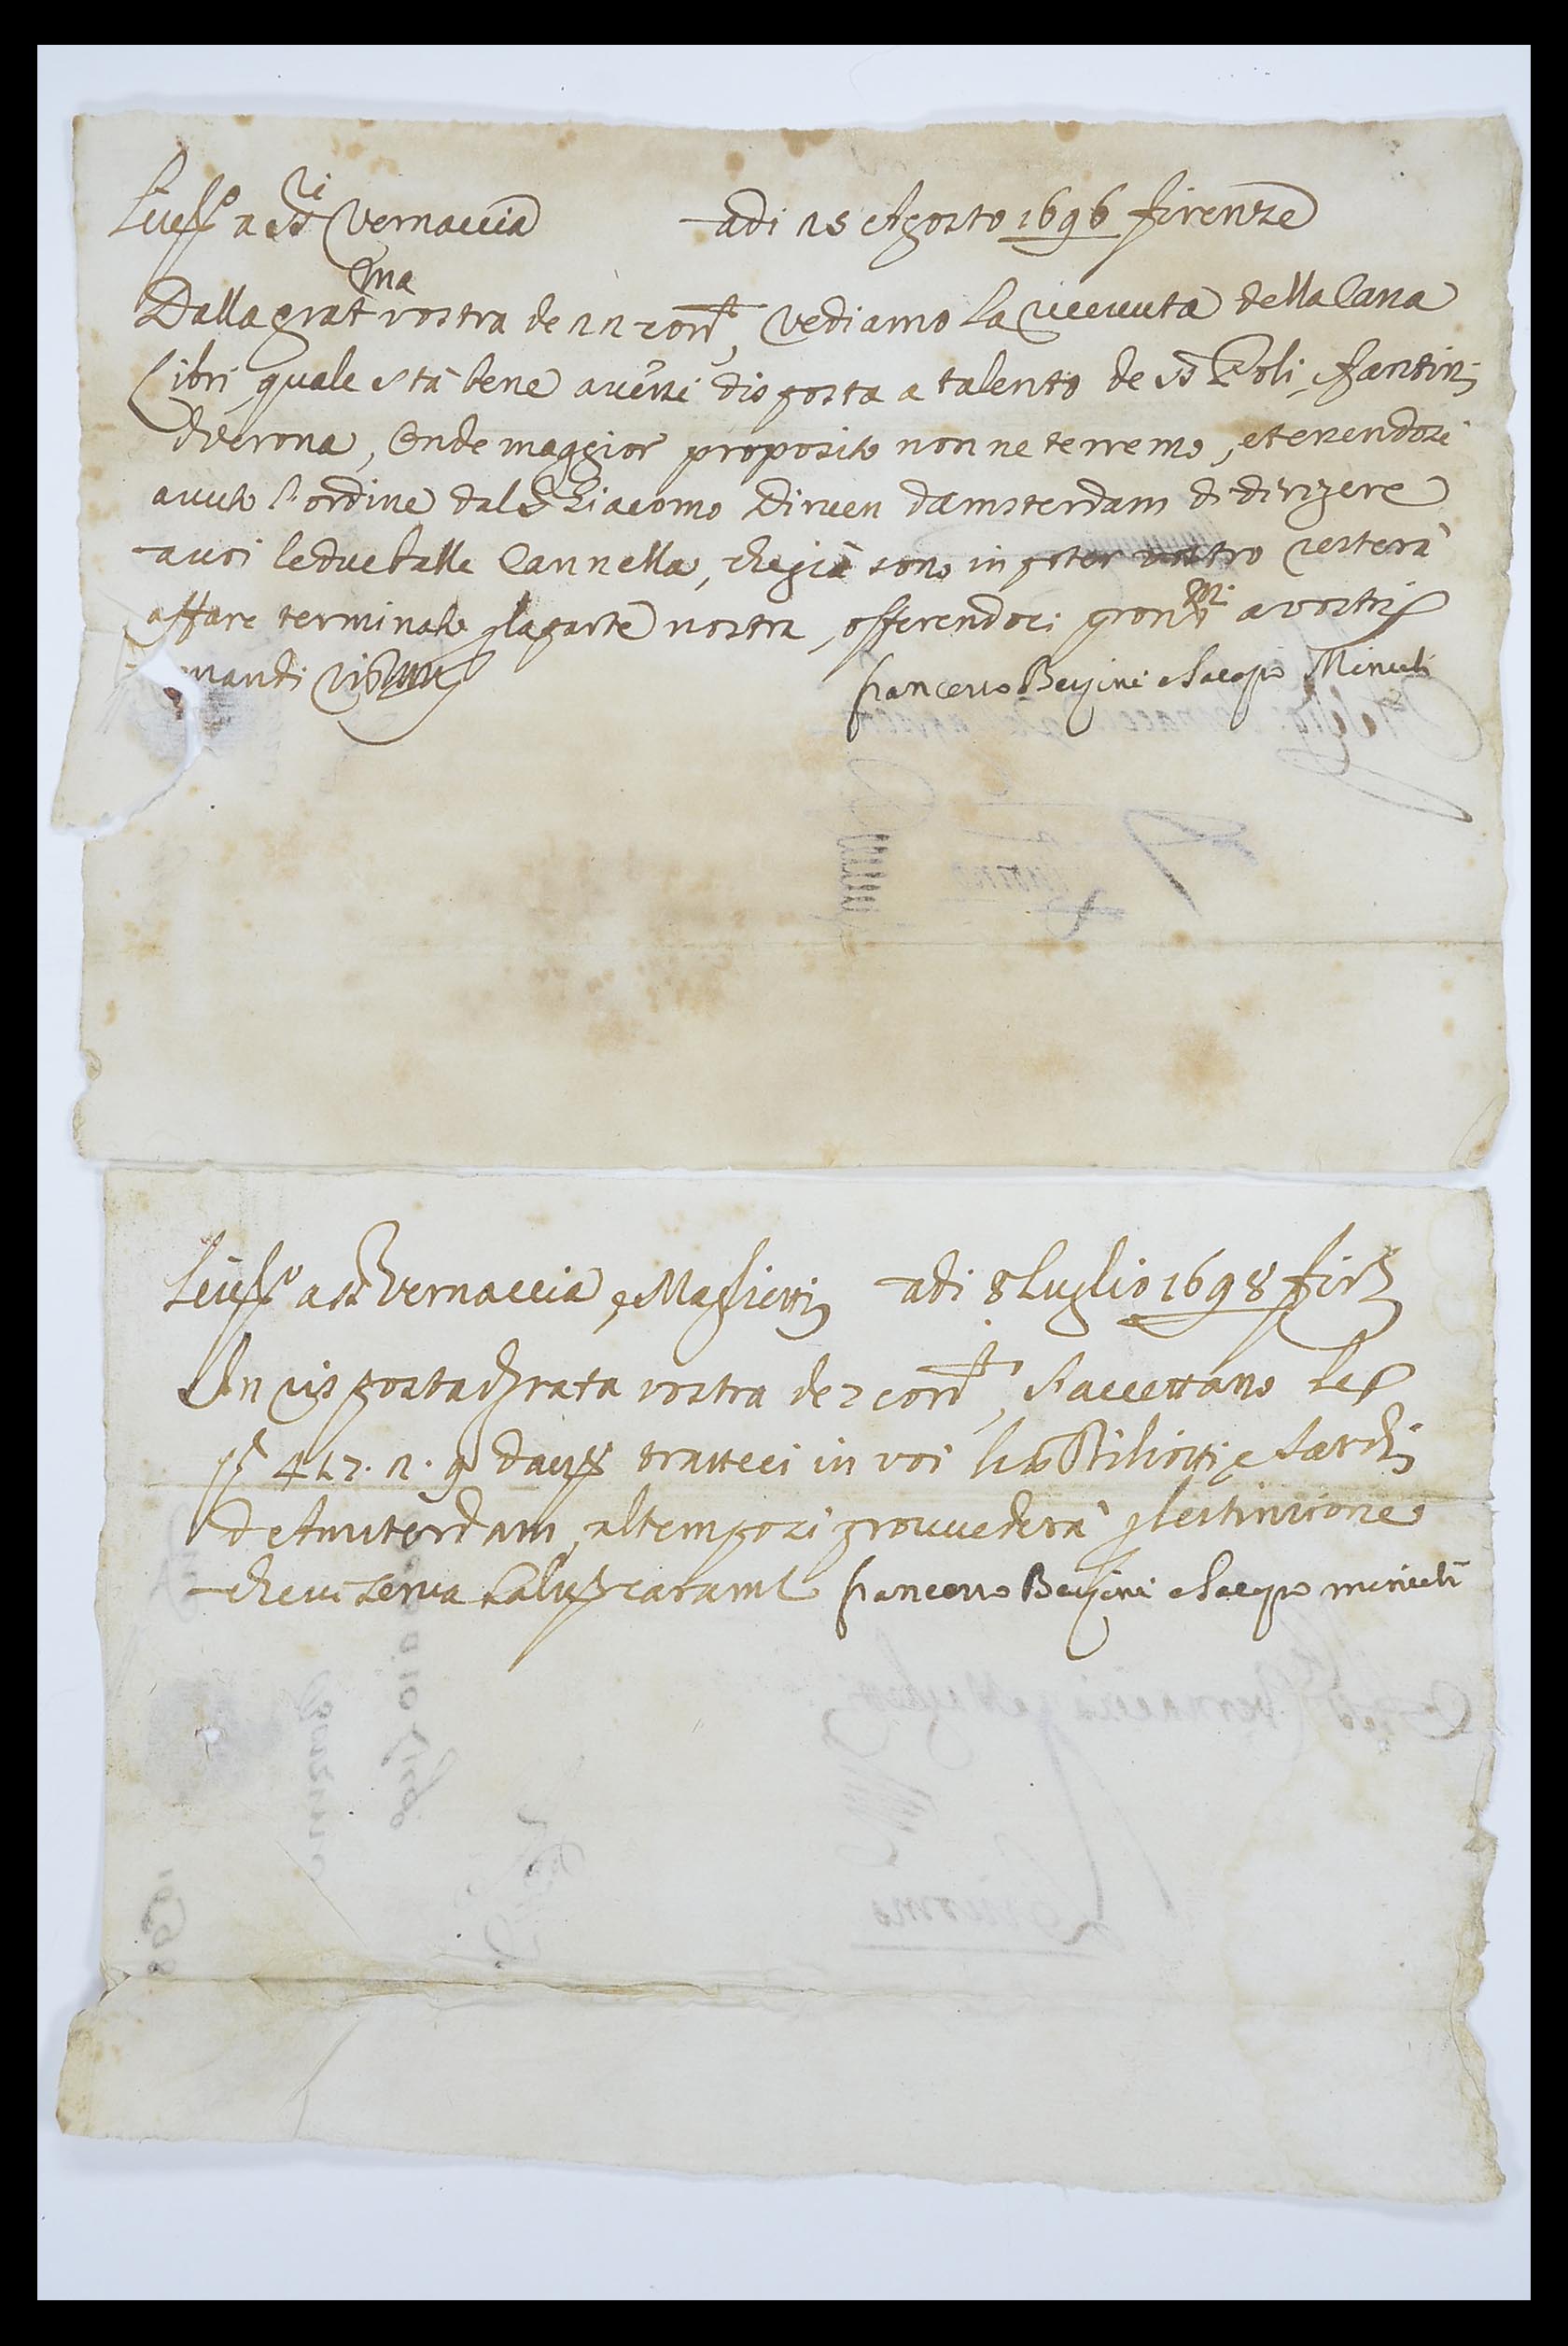 a SS.ri Vernaccia adi 25 Agosto 1696 firenze
Dalla grat.ma vostra de 22 corr.t, Vediamo la riceuuta della Cassa
libri quale stà bene auessi disposta a talento de SS. Poli, fantin
di verona, Onde maggior proposito non ne terremo, et essendosi
auuto l'ordine dal S. Giacomo Diruen d'amsterdam di dirigere
a uoi le due balle Cannella, che già sono in poter vostro resterà
affare terminato p la parte nostra, offerendoci pront.mi a vostri
mandi
francesco Bergini e Jacopo Minucli
a SS. Vernaccia, e Maglietti adi 8 Luglio 1698 fir.
In risposta di grata vostra de 2 corr.t, S'accettano le
p. 447. 2. 9 tratteci in voi li SS. Biliotti, e Sardi
d'Amsterdam, al tempo si prouuederà p l'estinsione
che ui serua caram.t francesco Bergini e Jacopo minucli